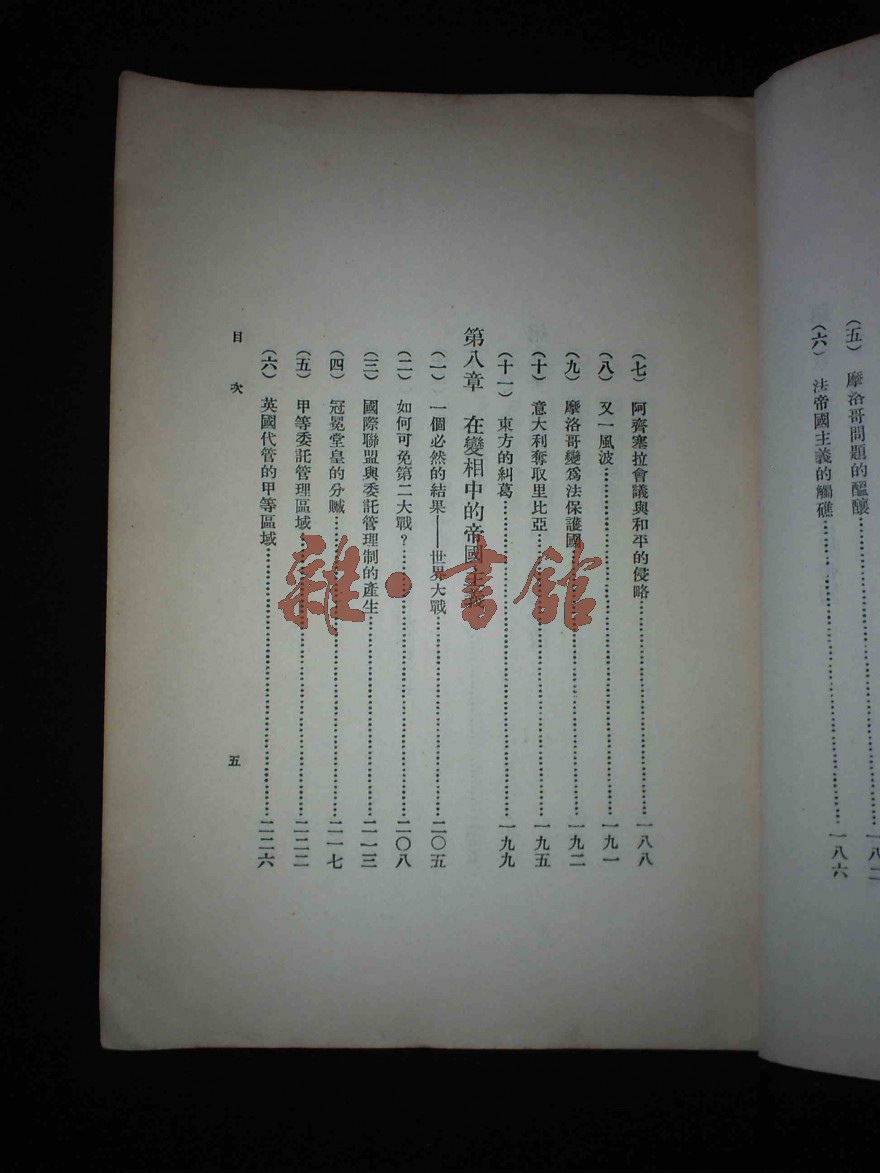 （五）　摩洛哥問題的醞釀……一八二
（六）　法帝國主義的觸礁……一八六
（七）　阿齊塞拉會議與和平的侵略……一八八
（八）　又一風波……一九一
（九）　摩洛哥變爲法保護國……一九二
（十）　意大利奪取里比亞……一九五
（十一）　東方的糾葛……一九九
第八章　在變相中的帝國主義
（一）　一個必然的結果——世界大戰……二〇五
（二）　如何可免第二大戰？……二〇八
（三）　國際聯盟與委託管理制的產生……二一三
（四）　冠冕堂皇的分贓……二一七
（五）　甲等委託管理區域……二二二
（六）　英國代管的甲等區域……二二六
目次　五
雜·書館